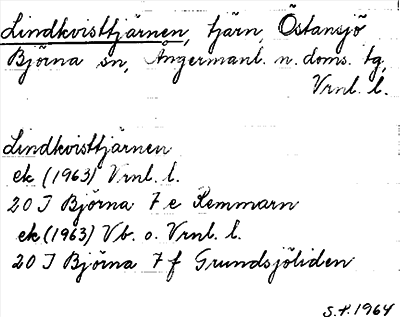 Lindkvisttjärnen, tjärn, Östansjö
Björna sn, Ångermanl. n. doms. tg,
Vrnl. l.
Lindkvisttjärnen
ek (1963) Vrnl. l.
20 J Björna 7 e Remmarn
ek (1963) Vb. o. Vrnl. l.
20 J Björna 7 f Grundsjöliden
S.F. 1964